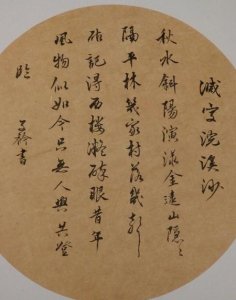 減字浣溪沙
秋水斜陽演漾金遠山隱〻
隔平林幾家村落幾聲
砧記得西樓凝醉眼昔年
風物似如今只無人與共登
臨
書